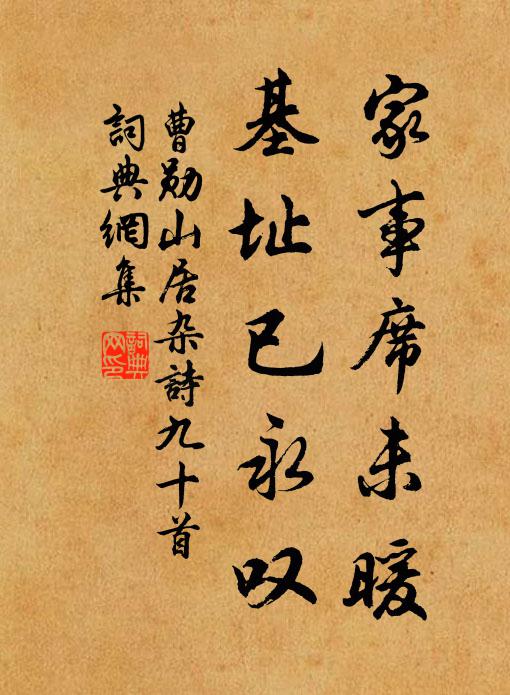 家事席未暖
基址已永叹
曹勋山居杂詩九十首
詞典網集
詞典网印